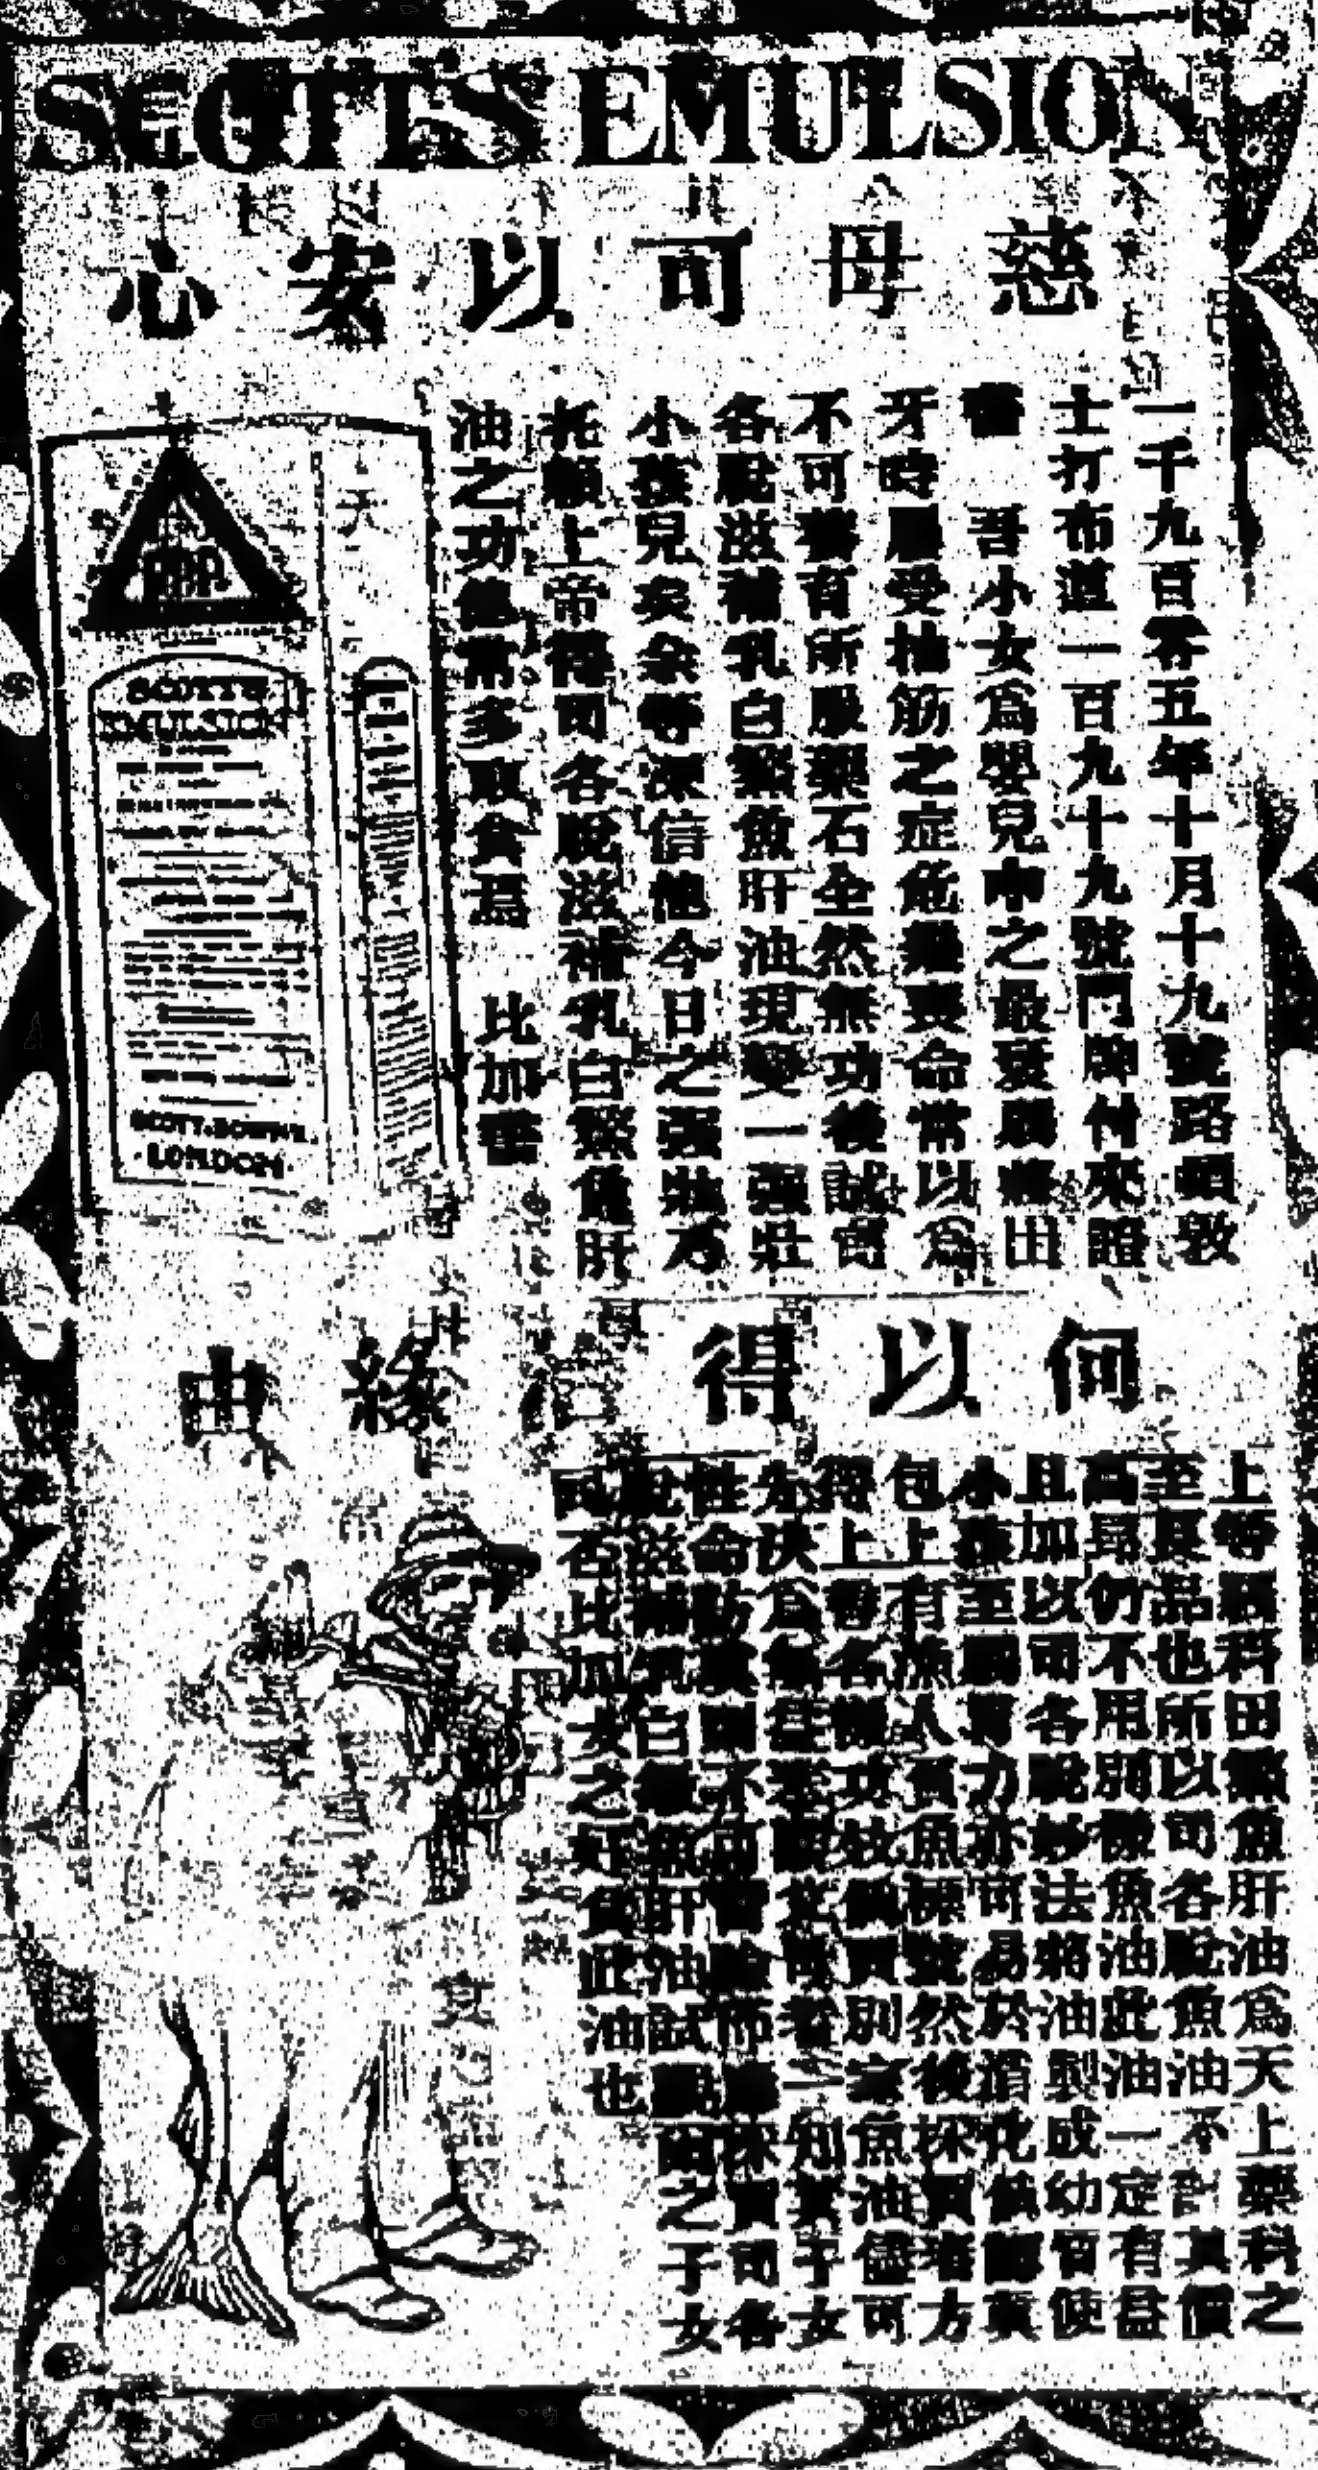 SCOTT'S EMULSION
慈母可以安心
一千九百零五年十月十九號路頓敦
士打布道一百九十九號門牌付來證
書 吾小女爲嬰兒中之最衰弱將出
牙時屢受抽筋之症危難喪命常以爲
不可養育所服藥石全然無功後試司
各脫滋補乳白鰵魚肝油現變一強壯
小孩兒矣余等深信他今日之强壯乃
托賴上帝得司各脫滋補乳白鰵魚肝
油之功德常多取食焉 比加
SCOTT'S
EMULSION
SCOTT & BOWNE
LONDON
何以得 緣由
上等 科田鰵魚肝油爲天上藥料之
至良品也所以司各脫魚油不計其價
高昂仍不用別樣魚油此油一定有益
且加以司各脫妙法將油製成幼質使
小孩至弱胃力亦可易於消化 真
包上有漁人負魚標號然後採買 方
得上 各樣功效倘買別家魚油儘可
知其子女
性命 不可冒險 採買司各
脫滋補乳白鰵魚肝油試 之子女
可否比加女之好食此油也